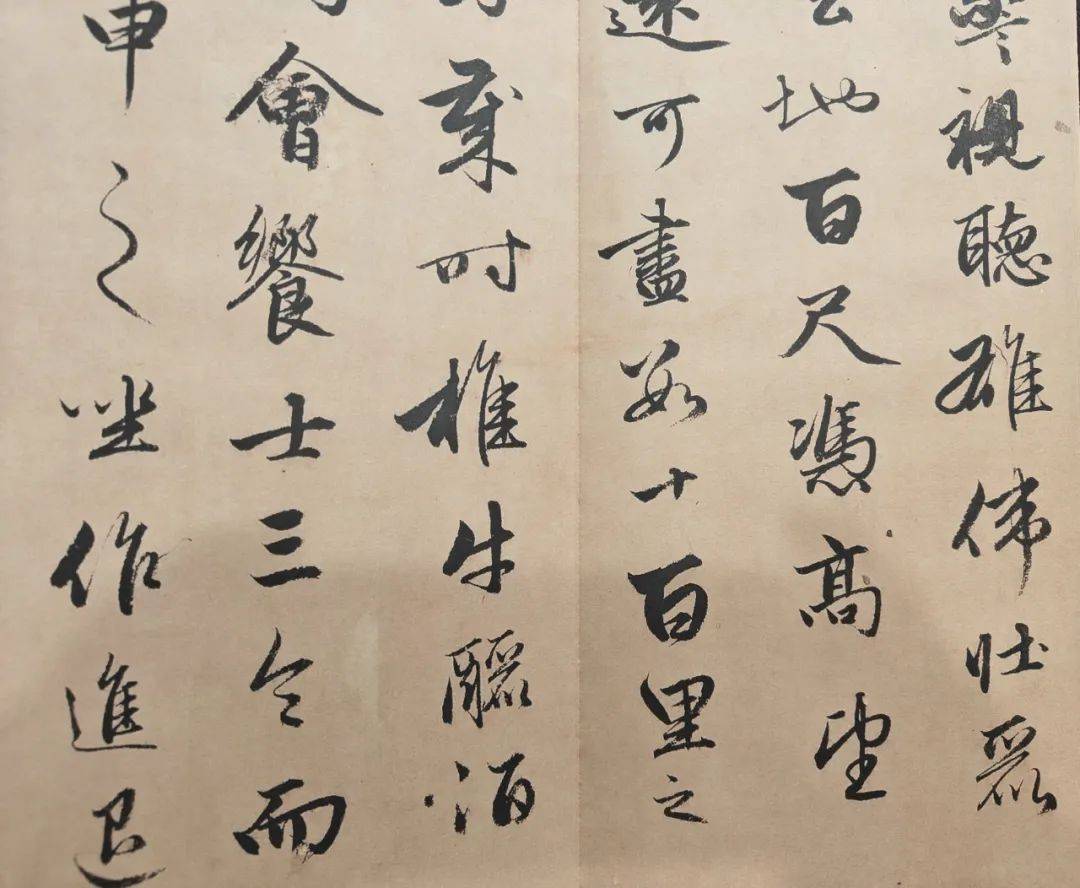 視聽雄偉壯麗
地百尺憑高望
遠可盡數十百里之
歲時椎牛釃酒
會饗士三令而
申之坐作進退